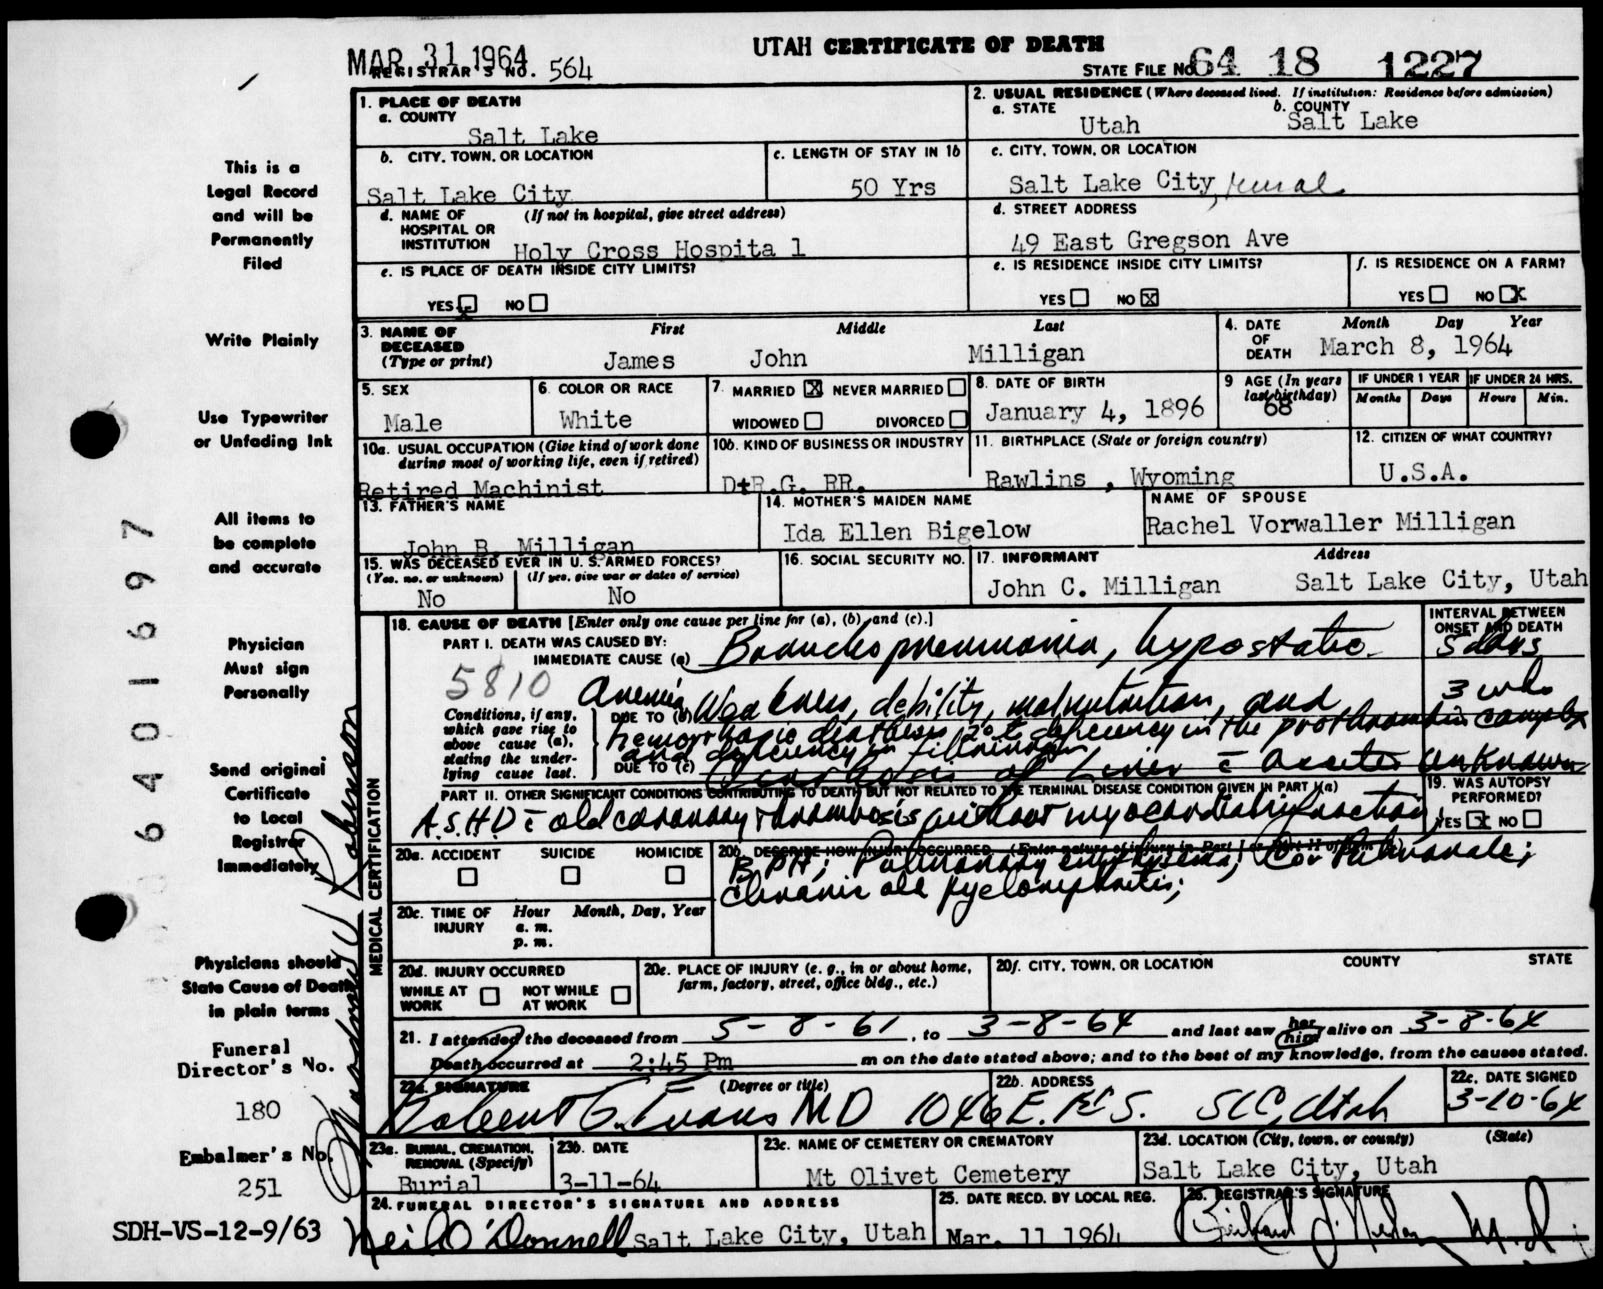 MAR 31 1964
UTAH CERTIFICATE OF DEATH
REGISTRAR'S NO. 564
STATE FILE NO. 64 18 1227
1. PLACE OF DEATH
a. COUNTY
Salt Lake
2. USUAL RESIDENCE (Where deceased lived. If institution: Residence before admission)
a. STATE
Utah
b. COUNTY
Salt Lake
b. CITY, TOWN, OR LOCATION
Salt Lake City
c. LENGTH OF STAY IN 1b
50 Yrs
c. CITY, TOWN, OR LOCATION
Salt Lake City, rural
d. NAME OF HOSPITAL OR INSTITUTION (If not in hospital, give street address)
Holy Cross Hospita l
d. STREET ADDRESS
49 East Gregson Ave
e. IS PLACE OF DEATH INSIDE CITY LIMITS?
YES X NO
e. IS RESIDENCE INSIDE CITY LIMITS?
YES NO X
f. IS RESIDENCE ON A FARM?
YES NO X
3. NAME OF DECEASED (Type or print)
First Middle Last
James John Milligan
4. DATE OF DEATH
Month Day Year
March 8, 1964
5. SEX
Male
6. COLOR OR RACE
White
7. MARRIED X NEVER MARRIED
WIDOWED DIVORCED
8. DATE OF BIRTH
January 4, 1896
9 AGE (In years last birthday)
68
IF UNDER 1 YEAR
Months Days
IF UNDER 24 HRS.
Hours Min.
10a. USUAL OCCUPATION (Give kind of work done during most of working life, even if retired)
Retired Machinist
10b. KIND OF BUSINESS OR INDUSTRY
D+R.G. RR.
11. BIRTHPLACE (State or foreign country)
Rawlins , Wyoming
12. CITIZEN OF WHAT COUNTRY?
U.S.A.
13. FATHER'S NAME
John B. Milligan
14. MOTHER'S MAIDEN NAME
Ida Ellen Bigelow
NAME OF SPOUSE
Rachel Vorwaller Milligan
15. WAS DECEASED EVER IN U. S. ARMED FORCES?
(Yes, no, or unknown) (If yes, give war or dates of service)
No No
16. SOCIAL SECURITY NO.
17. INFORMANT Address
John C. Milligan Salt Lake City, Utah
MEDICAL CERTIFICATION
18. CAUSE OF DEATH [Enter only one cause per line for (a), (b), and (c).]
INTERVAL BETWEEN ONSET AND DEATH
PART I. DEATH WAS CAUSED BY:
IMMEDIATE CAUSE (a) Bronchopneumonia, hypostatic
5 days
5810
Conditions, if any, which gave rise to above cause (a), stating the underlying cause last.
Anemia
DUE TO (b) Weakness, debility, malnutrition, and
3 wks
hemorrhagic diathesis 2° to deficiency in the prothrombin complex
and deficiency in fibrinogen
DUE TO (c) Cirrhosis of Liver c̄ ascites
Unknown
PART II. OTHER SIGNIFICANT CONDITIONS CONTRIBUTING TO DEATH BUT NOT RELATED TO THE TERMINAL DISEASE CONDITION GIVEN IN PART I(a)
A.S.H.D c̄ old coronary thrombosis without myocardial infarction,
19. WAS AUTOPSY PERFORMED?
YES X NO
20a. ACCIDENT SUICIDE HOMICIDE
20b. DESCRIBE HOW INJURY OCCURRED. (Enter nature of injury in Part I or Part II of item 18.)
B.P.H; Pulmonary emphysema; Cor Pulmonale;
chronic old pyelonephritis;
20c. TIME OF INJURY Hour Month, Day, Year
a. m.
p. m.
20d. INJURY OCCURRED
WHILE AT WORK NOT WHILE AT WORK
20e. PLACE OF INJURY (e. g., in or about home, farm, factory, street, office bldg., etc.)
20f. CITY, TOWN, OR LOCATION COUNTY STATE
21. I attended the deceased from 5-8-61, to 3-8-64 and last saw her him alive on 3-8-64
Death occurred at 2:45 Pm m on the date stated above; and to the best of my knowledge, from the causes stated.
22a. SIGNATURE (Degree or title)
Robert G. Evans MD
22b. ADDRESS
1046 E. 1st S. SLC, Utah
22c. DATE SIGNED
3-10-64
23a. BURIAL, CREMATION, REMOVAL (Specify)
Burial
23b. DATE
3-11-64
23c. NAME OF CEMETERY OR CREMATORY
Mt Olivet Cemetery
23d. LOCATION (City, town, or county) (State)
Salt Lake City, Utah
24. FUNERAL DIRECTOR'S SIGNATURE AND ADDRESS
Neil O'Donnell Salt Lake City, Utah
25. DATE RECD. BY LOCAL REG.
Mar. 11 1964
26. REGISTRAR'S SIGNATURE
This is a
Legal Record
and will be
Permanently
Filed
Write Plainly
Use Typewriter
or Unfading Ink
All items to
be complete
and accurate
Physician
Must sign
Personally
Send original
Certificate
to Local
Registrar
Immediately
Physicians should
State Cause of Death
in plain terms
Funeral
Director's No.
180
Embalmer's No.
251
SDH-VS-12-9/63
6401697
Robinson